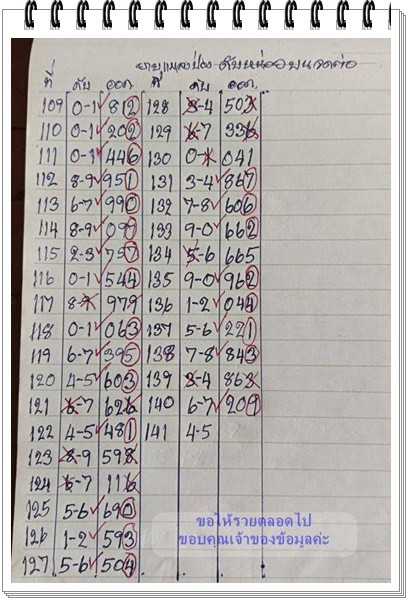 ที่ ดับ ออก ที่ ดับ ออก
109 0-1 812 128 8-4 503
110 0-1 202 129 6-7 336
111 0-1 446 130 0-1 041
112 8-9 951 131 3-4 867
113 6-7 990 132 7-8 606
114 8-9 097 133 9-0 662
115 2-3 797 134 5-6 665
116 0-1 544 135 9-0 962
117 8-9 979 136 1-2 044
118 0-1 063 137 5-6 221
119 6-7 395 138 7-8 843
120 4-5 603 139 3-4 863
121 6-7 626 140 6-7 209
122 4-5 481 141 4-5
123 8-9 598
124 6-7 116
125 5-6 690
126 1-2 593
127 5-6 504
ขอให้รวยตลอดไป
ขอบคุณเจ้าของข้อมูลค่ะ